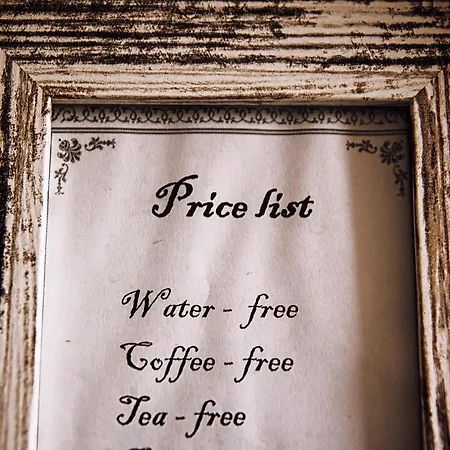 Price list
Water - free
Coffee - free
Tea - free